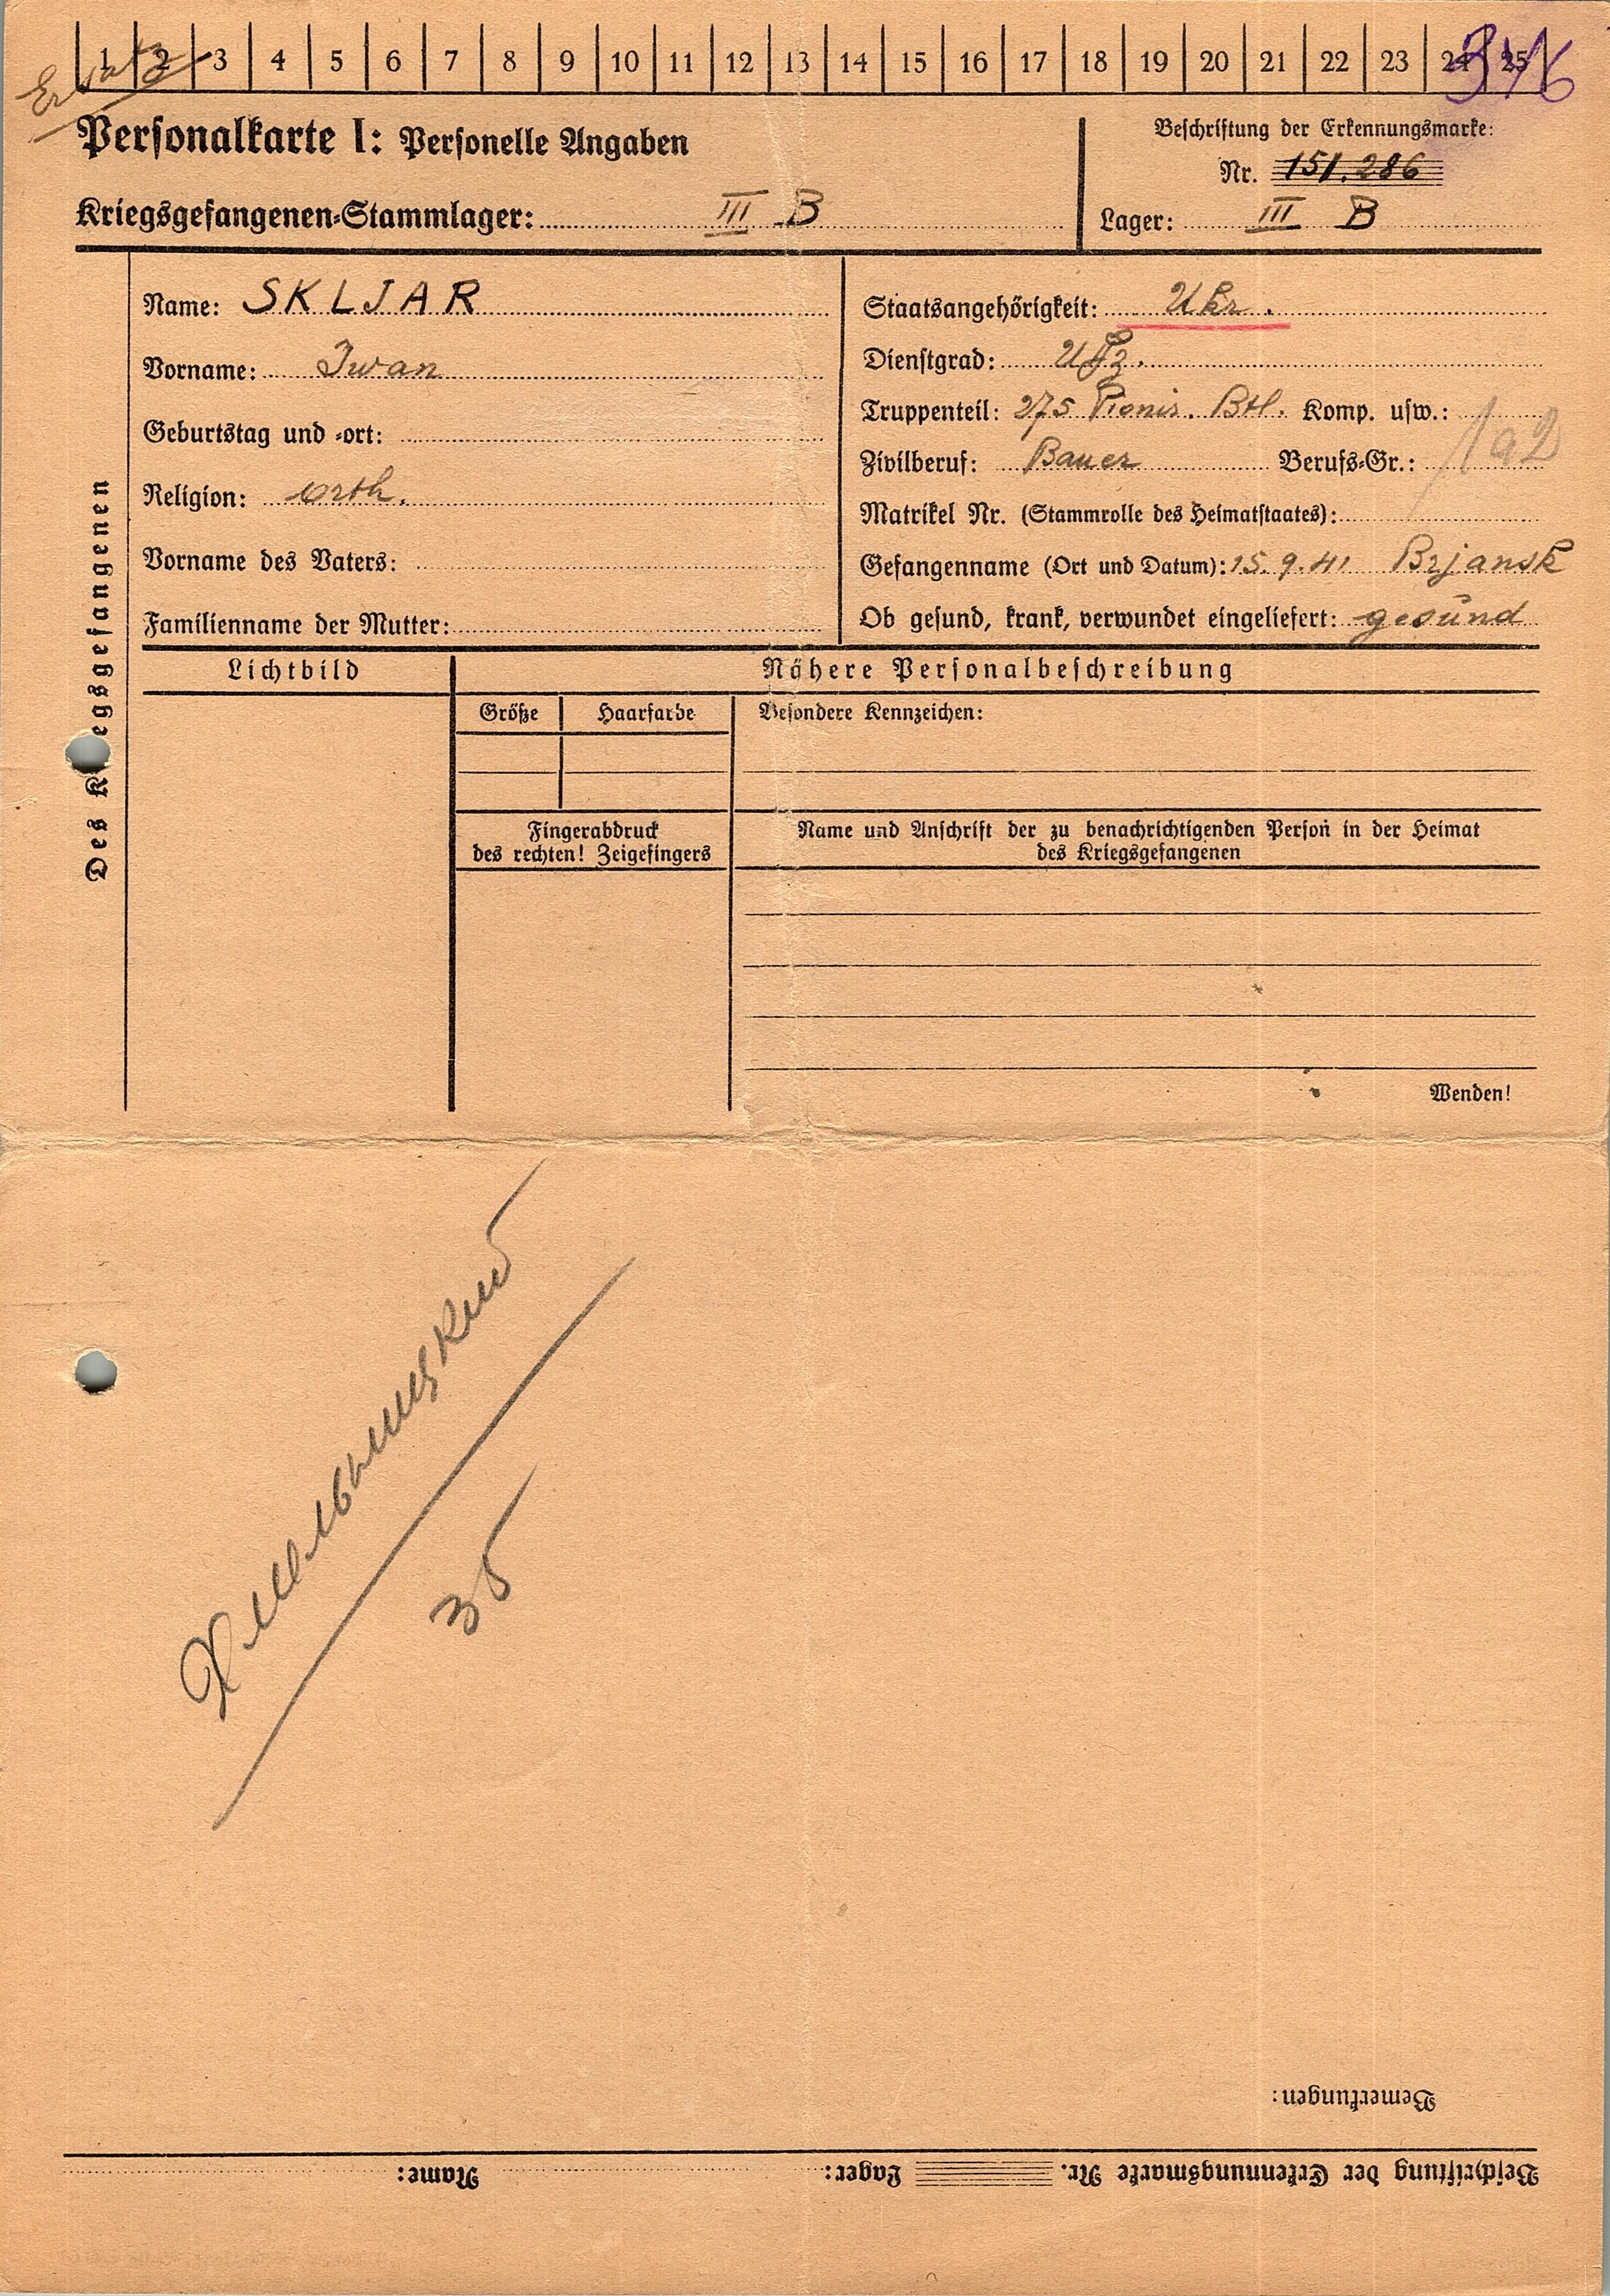 Ersatz
1 2 3 4 5 6 7 8 9 10 11 12 13 14 15 16 17 18 19 20 21 22 23 24 25
346
Personalkarte I: Personelle Angaben
Kriegsgefangenen-Stammlager: III B
Beschriftung der Erkennungsmarke:
Nr. 151.286
Lager: III B
Des Kriegsgefangenen
Name: SKLJAR
Vorname: Iwan
Geburtstag und -ort:
Religion: orth.
Vorname des Vaters:
Familienname der Mutter:
Staatsangehörigkeit: Ukr.
Dienstgrad: Uffz.
Truppenteil: 275 Pionir. Btl. Komp. usw.:
Zivilberuf: Bauer Berufs-Gr.: 1a2
Matrikel Nr. (Stammrolle des Heimatstaates):
Gefangenname (Ort und Datum): 15.9.41 Brjansk
Ob gesund, krank, verwundet eingeliefert: gesund
Lichtbild
Nähere Personalbeschreibung
Größe Haarfarbe Besondere Kennzeichen:
Fingerabdruck
des rechten! Zeigefingers
Name und Anschrift der zu benachrichtigenden Person in der Heimat
des Kriegsgefangenen
Wenden!
Хмельницкий
35
Bemerkungen:
Beschriftung der Erkennungsmarke Nr. Lager: Name: